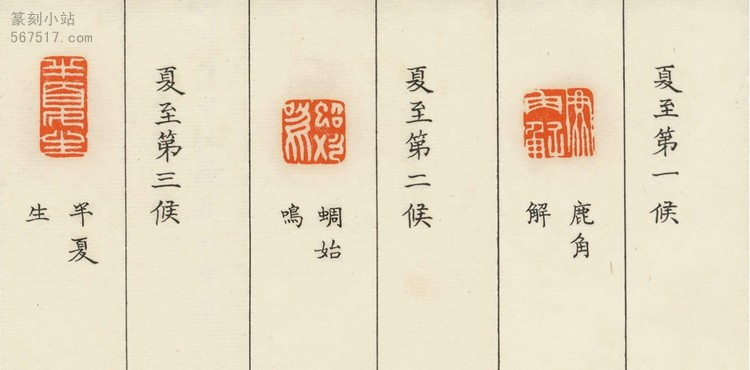 篆刻小站
567517.com
夏至第一候
鹿角
解
夏至第二候
蜩始
鳴
夏至第三候
半夏
生